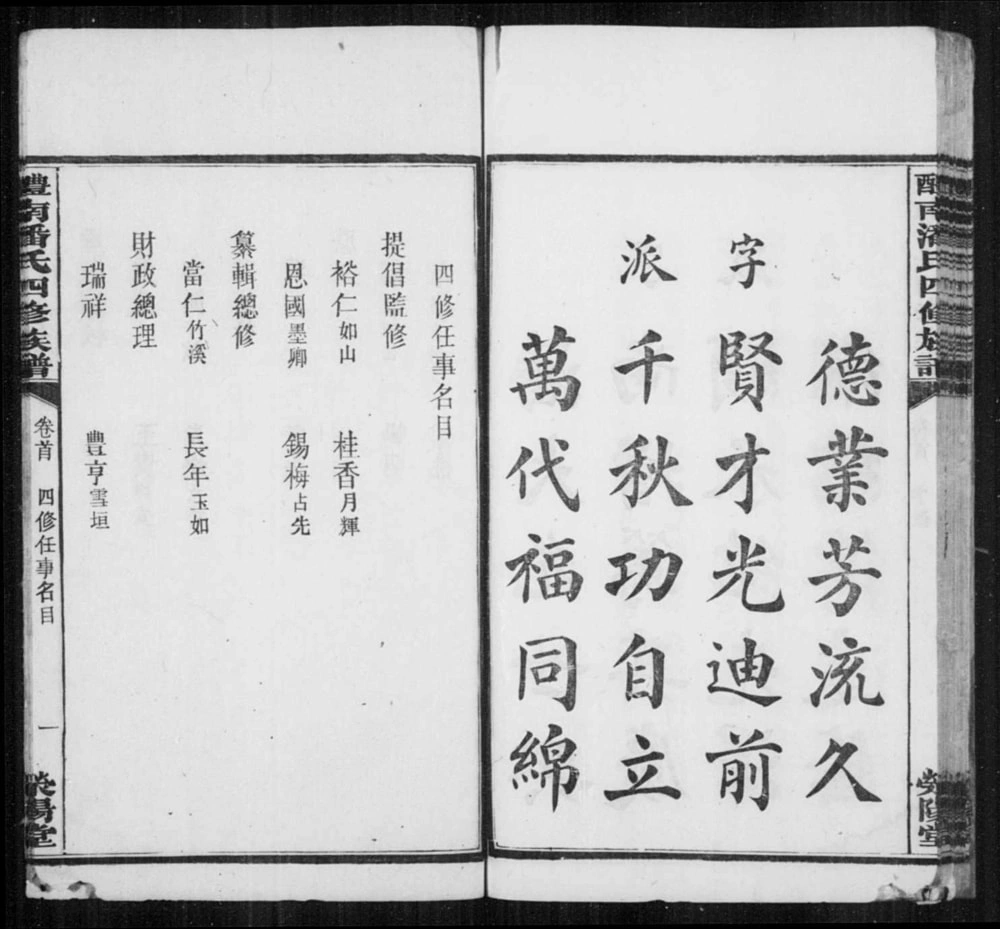 醴南潘氏四修族譜
滎陽堂
字派
德業芳流久
賢才光迪前
千秋功自立
萬代福同綿
四修任事名目
提倡監修
裕仁如山 桂香月輝
恩國墨卿 錫梅占先
纂輯總修
當仁竹溪 長年玉如
財政總理
瑞祥 豐亨雪垣
醴南潘氏四修族譜
卷首 四修任事名目 一
滎陽堂